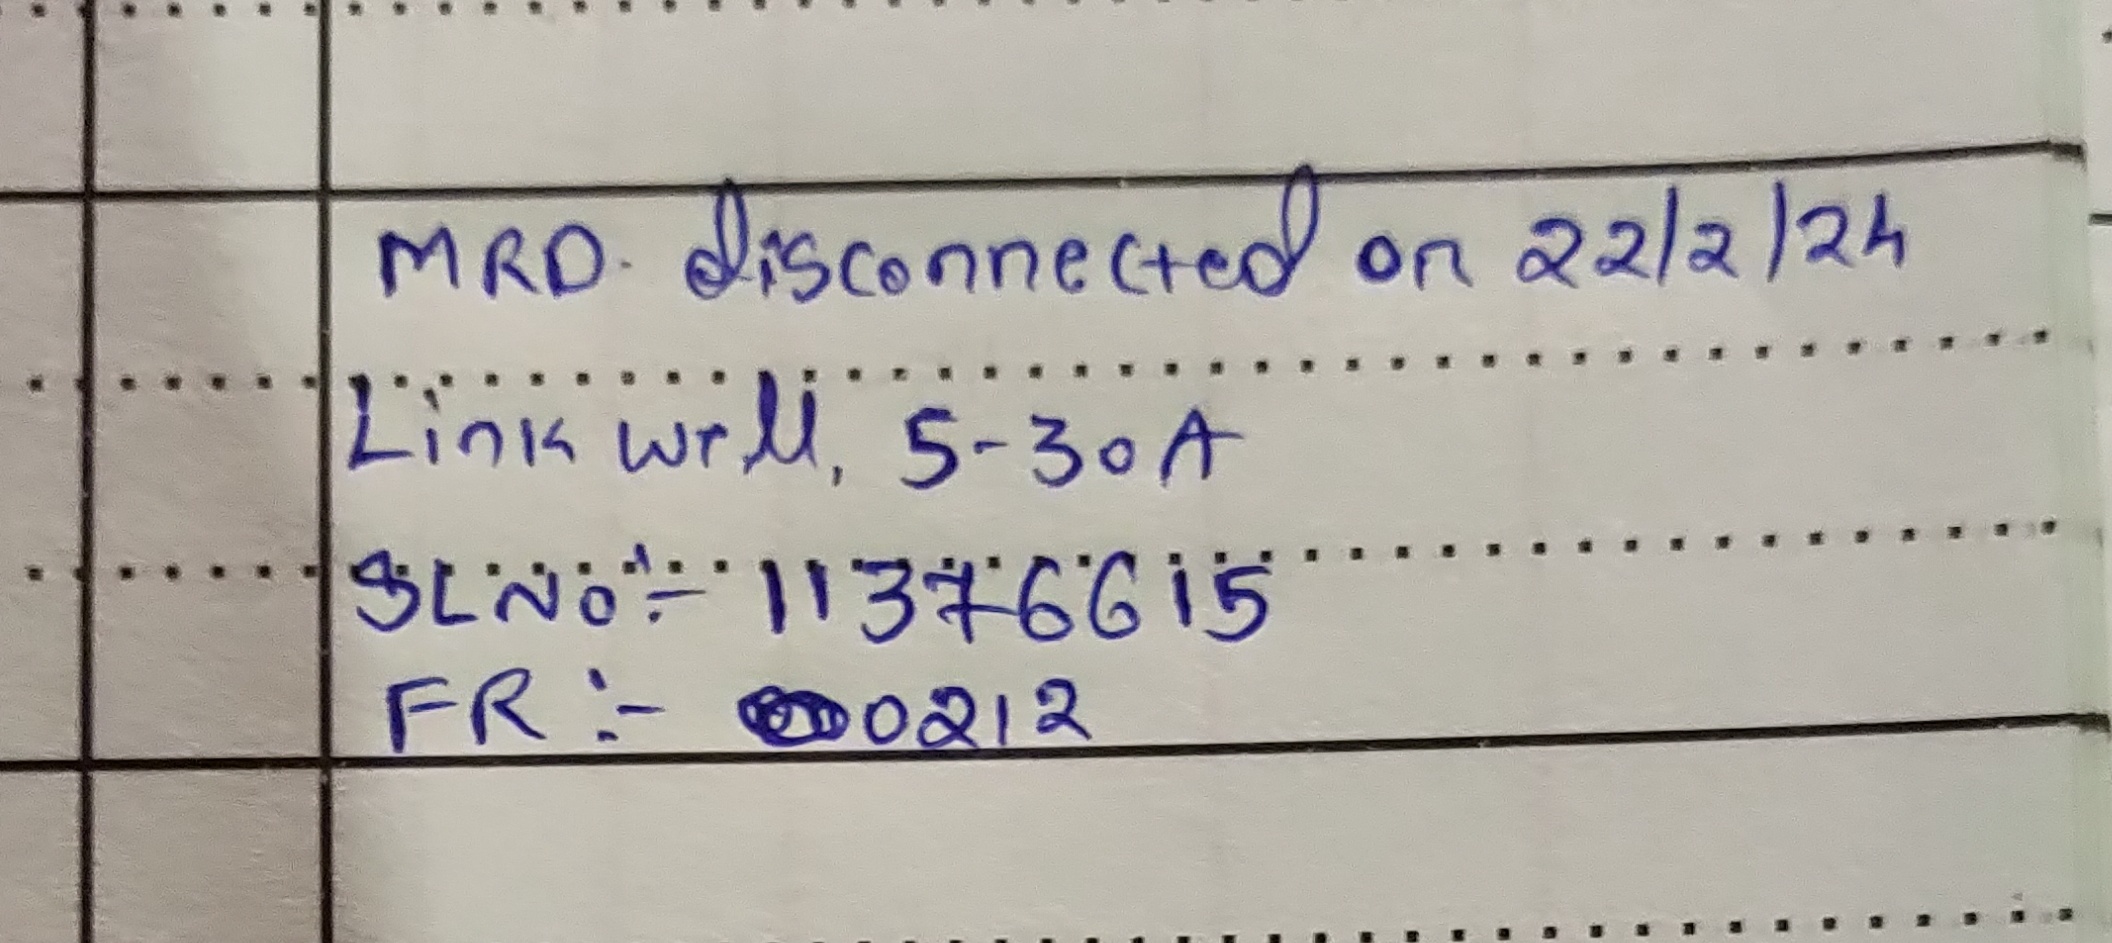 MRD. disconnected on 22/2/24
Link well, 5-30A
SLNo:- 11376615
FR:- 0212